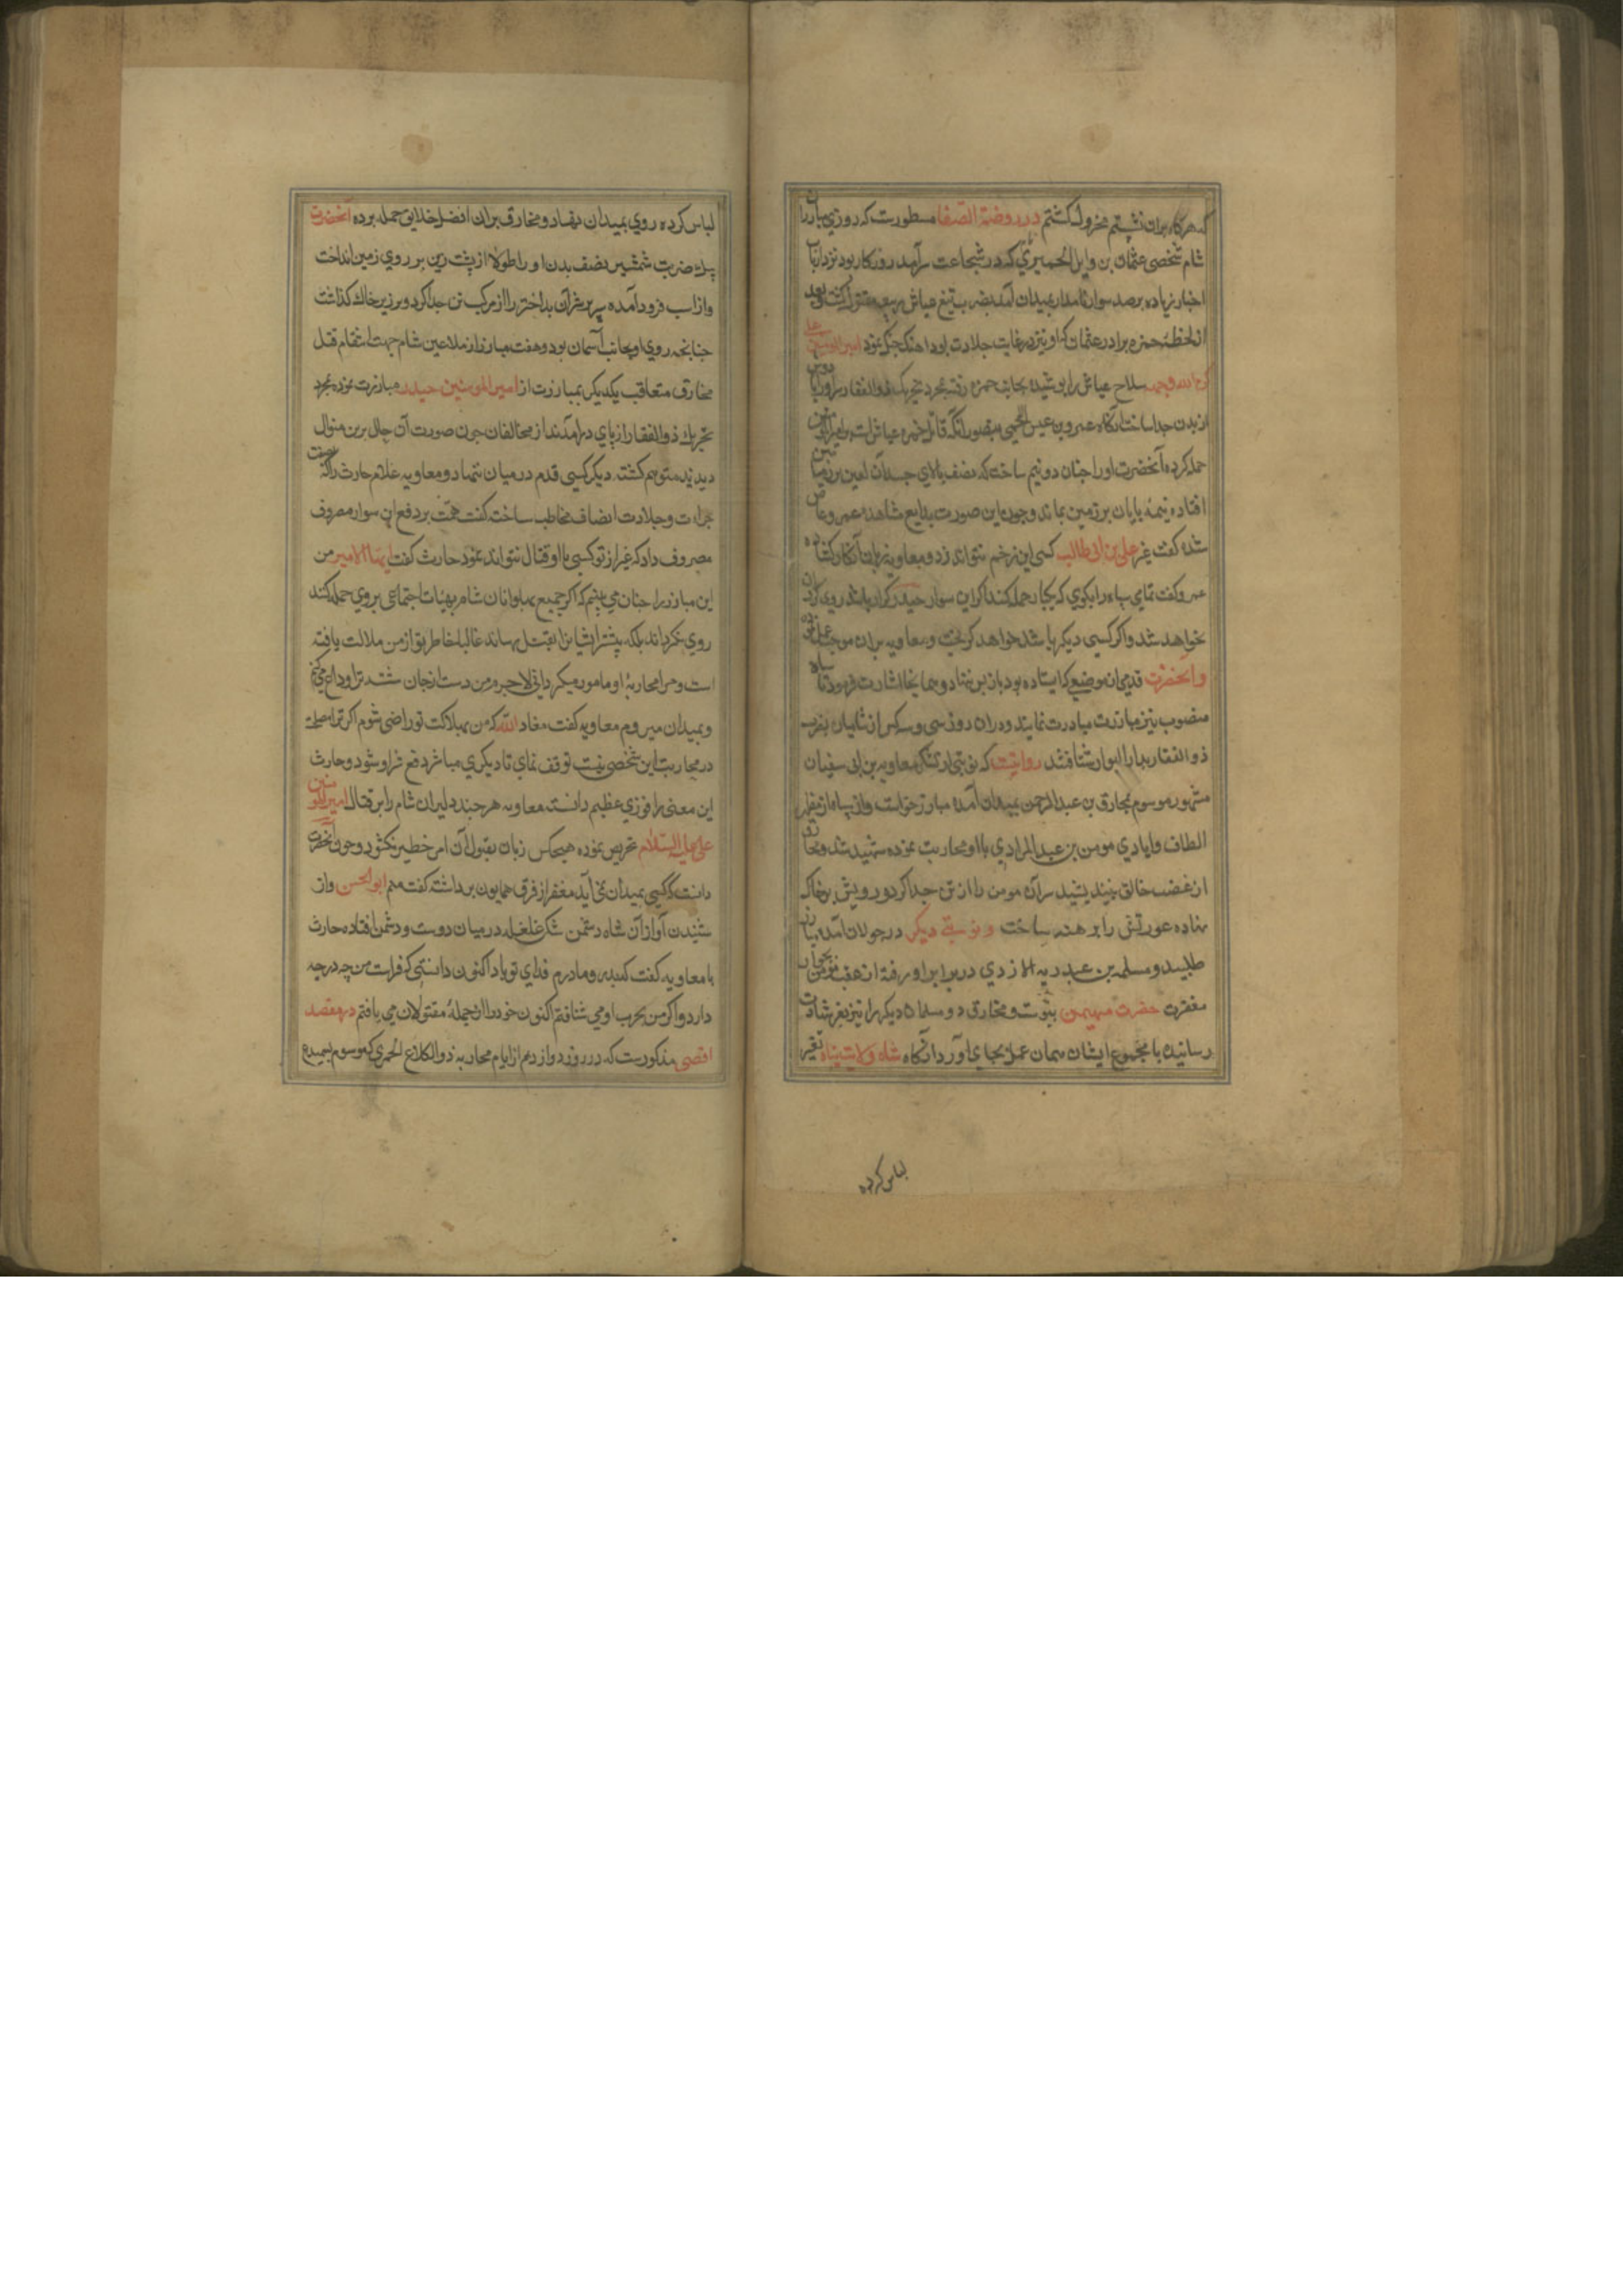 که هرکاه بران نشستم مخزول کشتم در روضة الصفا مسطورست که روزی مبارزان
شام شخصی عثمان بن وایل الحمیری که در شجاعت سرآمد روزکار بود نزد ارباب
اخبار زیاده بر صد سوار نامدار بمیدان آمد بضرب تیغ عباس ربیعه مقتول کشت و بعد
از لحظه حمزه برادر عثمان که او نیز در غایت جلادت بود اهنک جنک نمود امیر المومنین علی
کرم الله وجهه سلاح عباس را پوشیده بجانب حمزه رفته بمجرد تحریک ذوالفقار سر او را
از بدن جدا ساخت انکاه عمرو بن عیس بتصور انکه قاتل حمزه عباس است بر امیر المومنین
حمله کرده آنحضرت او را جنان دو نیم ساخت که نصف بالای جسد آن لعین بر زمین
افتاده نیمه پایان بر زین بماند وجون این صورت بدایع شاهد عمرو عاص
شده کفت غیر علی بن ابی طالب کسی این زخم نتواند زد و معاویه انکار کرده
عمرو کفت تمامی سپاه را بکوی که یکبار حمله کنند اکر این سوار حیدر کرار باشد روی کردان
نخواهد شد واکر کسی دیکر باشد خواهد کریخت ومعاویه بران موجب عمل نموده
وانحضرت قدم از موضعی که ایستاده بود باز پس ننهاد وهمانجا اشارت فرمود تا سپاه
منصوب نیز مبارزت مبادرت نمایند ودران روز سی وسه کس از شامیان بضرب
ذوالفقار بدار البوار شتافتند روایتست که نوبتی از لشکر معاویه بن ابی سفیان
مشهور موسوم بمخارق بن عبدالرحمن بمیدان آمده مبارز خواست واز سپاه ظفر
الطاف وایادی مومن بن عبد المرادی با او محاربت نموده شهید شد ومخارق
از غضب خالق نیندیشید سر آن مومن را از تن جدا کرد و رویش بر خاک
نهاده عورتش را برهنه ساخت ونوبتی دیکر در جولان آمده مبارز
طلبید ومسلمه بن عبد ربه الازدی در برابر او رفته از بجوار
مغفرت حضرت مهیمن پیوست ومخارق دو مسلمان دیکر را نیز بعز شهادت
رسانیده با مجموع ایشان همان عمل بجای آورد انکاه شاه ولایت پناه تغیر
لباس کرده
لباس کرده روی بمیدان نهاد ومخارق بران افضل خلایق حمله برده آنحضرت
بیک ضربت شمشیر نصف بدن او را طولا از پشت زین بر روی زمین انداخت
واز اسب فرود آمده سر پر شر آن بداختر را از مرکب تن جدا کرد وبر زیر خاک کذاشت
جنانجه روی او بجانب آسمان بود وهفت مبارز از ملاعین شام جهت انتقام قتل
مخارق متعاقب یکدیکر بمبارزت از امیر المومنین حیدر مبارزت نموده بمجرد
تحریک ذوالفقار از پای درامدند از مخالفان جون صورت آن حال برین منوال
دیدند متوهم کشته دیکر کسی قدم در میان ننهاد ومعاویه غلام حارث را که بصفت
جرات وجلادت اتصاف مخاطب ساخته کفت همت بر دفع این سوار معروف
مصروف داد که غیر از تو کسی با او قتال نتواند نمود حارث کفت ایها الامیر من
این مبارز را جنان می بینم که اکر جمیع پهلوانان شام بهیات اجتماعی بر وی حمله کنند
روی نکرداند بلکه بیشتر ایشانرا بقتل رساند غالبا خاطر تو از من ملالت یافته
است ومرا بمحاربه او مامور میکردانی لاجرم من دست از جان شسته ترا وداع میکنم
وبمیدان میروم معاویه کفت معاد الله که من بهلاکت تو راضی شوم اکر ترا مصلحت
در محاربت این شخص نیست توقف نمای تا دیکری مباشر دفع شر او شود وحارث
این معنی را فوزی عظیم دانسته معاویه هر جند دلیران شام را بر قتال امیر المومنین
علی علیه السلام تحریص نموده هیجکس زبان بقبول آن امر خطیر نکشود وجون آنحضرت
دانست که کسی بمیدان نمی آید مغفر از فرق همایون برداشته کفت منم ابو الحسن واز
شنیدن آواز آن شاه دشمن شکن غلغله در میان دوست ودشمن افتاده حارث
با معاویه کفت که پدر ومادرم فدای تو باد اکنون دانستی که فراست من چه درجه
دارد واکر من بحرب او می شتافتم اکنون خود را از جمله مقتولان می یافتم در مقصد
اقصی مذکورست که در روز دوازدهم از ایام محاربه ذوالکلاع الحمیری که موسوم بسمیده